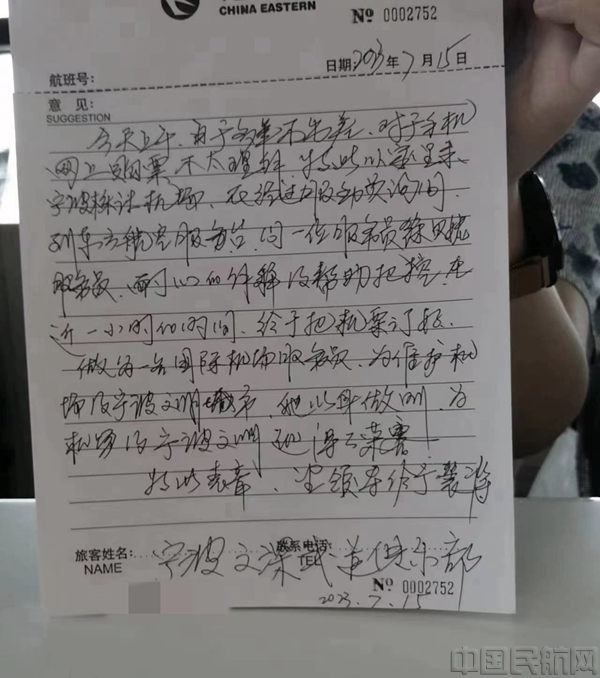 CHINA EASTERN
№ 0002752
日期: 2023年7月15日
航班号:
意 见:
SUGGESTION
今天上午, 由于多年不出差, 对于手机
网上购票不太理解, 特此以家里来
宁波栎社机场, 在经过服务员询问,
到东方航空服务台, 问一位服务员
服务员, 耐心的解释及帮助把控, 在
近一小时的时间, 终于把机票订好.
做为一名国际机场服务员, 为维护机
场及宁波文明城市, 她以身做则, 为
机场及宁波文明 荣誉.
特此表章, 望领导给予褒奖
旅客姓名:
NAME
联系电话:
TEL
宁波文 武道俱乐部
№ 0002752
2023.7.15
中国民航网